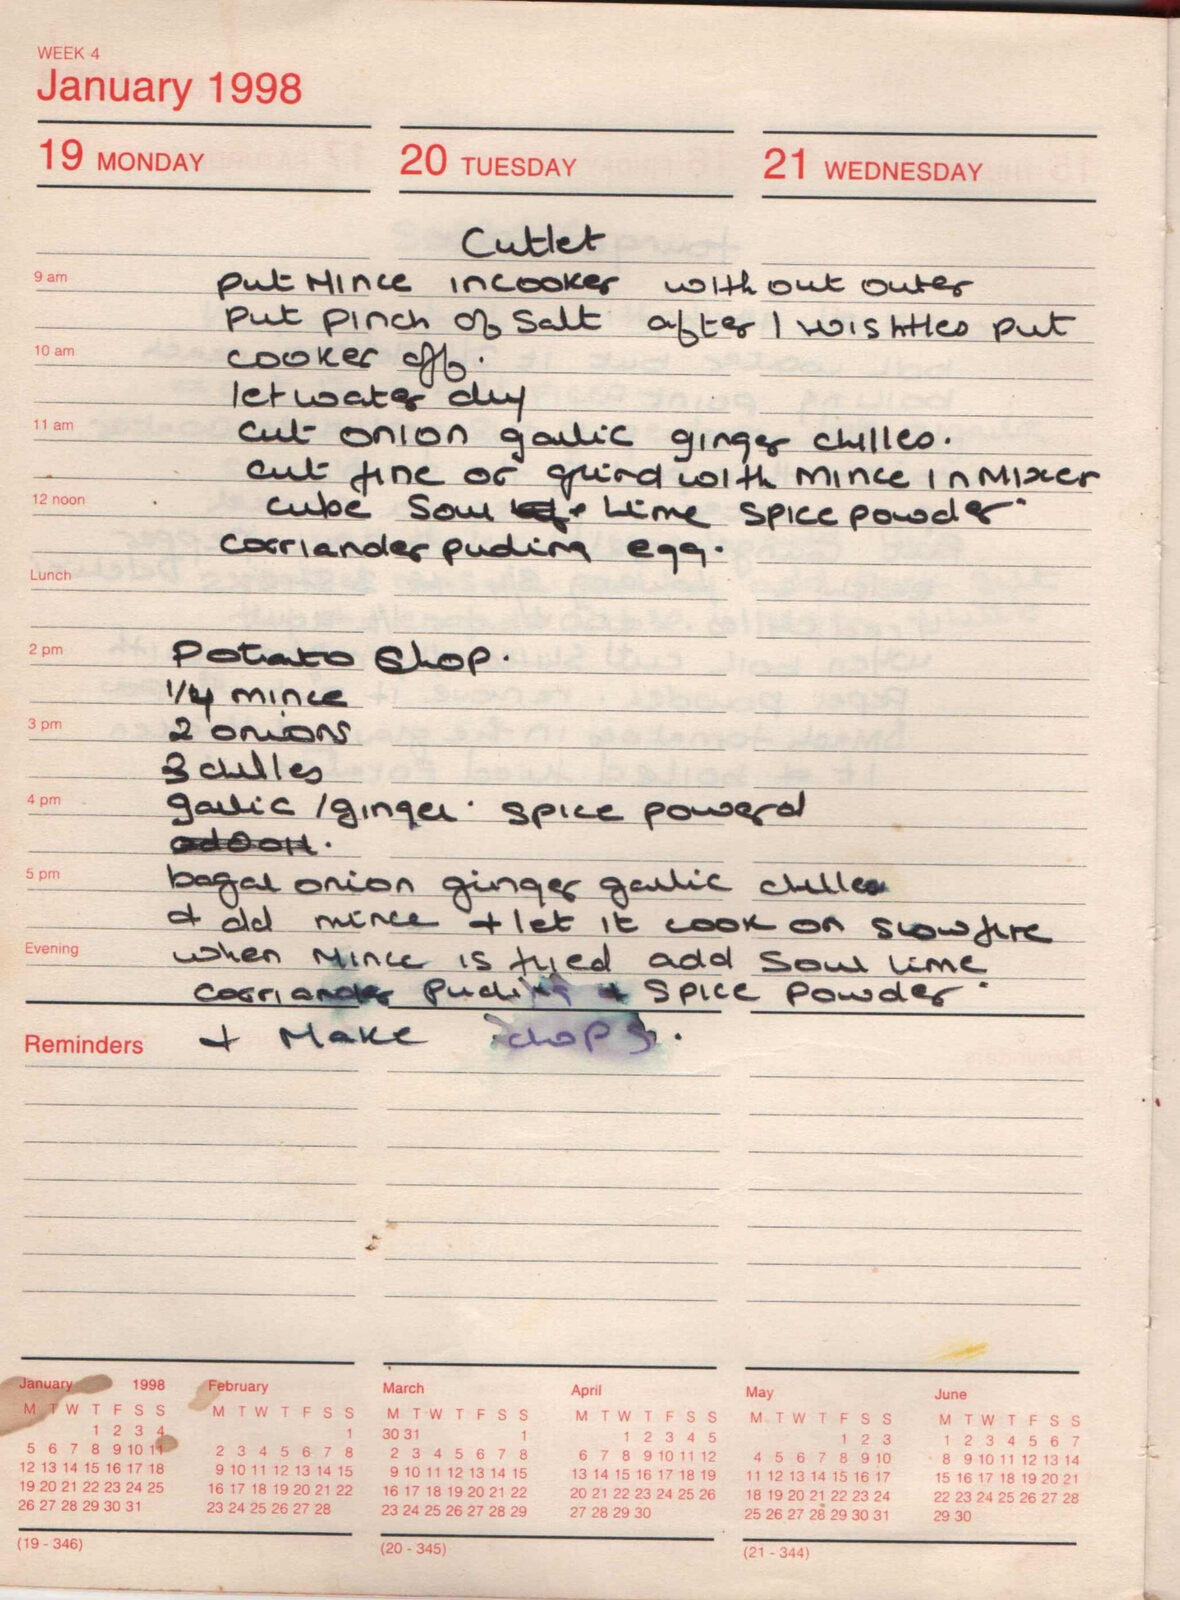 WEEK 4
January 1998
19 MONDAY
20 TUESDAY
21 WEDNESDAY
Cutlet
9 am
put Mince in cooker without outer
put pinch of Salt after 1 wishtles put
10 am
cooker off.
let water dry
11 am
cut onion garlic ginger chilles.
cut fine or grind with Mince in Mixer
12 noon
cube Sour + Lime Spice powder
corriander pudina egg.
Lunch
2 pm
Potato Chop.
1/4 mince
3 pm
2 onions
3 chilles
4 pm
garlic / ginger. spice powerd
5 pm
bagar onion ginger garlic chilles
+ add mince + let it cook on slow fire
Evening
when Mince is fried add Sour lime
corriander Pudina + Spice Powder.
Reminders
+ Make chops.
January 1998
M T W T F S S
1 2 3 4
5 6 7 8 9 10 11
12 13 14 15 16 17 18
19 20 21 22 23 24 25
26 27 28 29 30 31
February
M T W T F S S
1
2 3 4 5 6 7 8
9 10 11 12 13 14 15
16 17 18 19 20 21 22
23 24 25 26 27 28
March
M T W T F S S
30 31 1
2 3 4 5 6 7 8
9 10 11 12 13 14 15
16 17 18 19 20 21 22
23 24 25 26 27 28 29
April
M T W T F S S
1 2 3 4 5
6 7 8 9 10 11 12
13 14 15 16 17 18 19
20 21 22 23 24 25 26
27 28 29 30
May
M T W T F S S
1 2 3
4 5 6 7 8 9 10
11 12 13 14 15 16 17
18 19 20 21 22 23 24
25 26 27 28 29 30 31
June
M T W T F S S
1 2 3 4 5 6 7
8 9 10 11 12 13 14
15 16 17 18 19 20 21
22 23 24 25 26 27 28
29 30
(19 - 346)
(20 - 345)
(21 - 344)